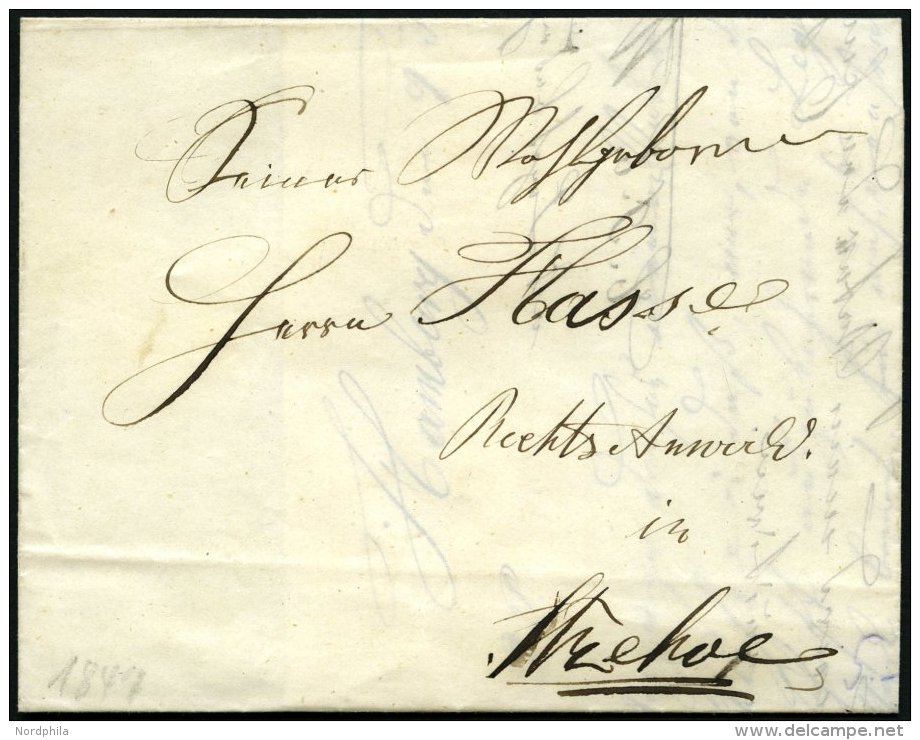 Seiner Wohlgeboren
Herrn Hasse
Rechts Anwald.
in
Itzehoe
1847
Nordphila
delcampe.net